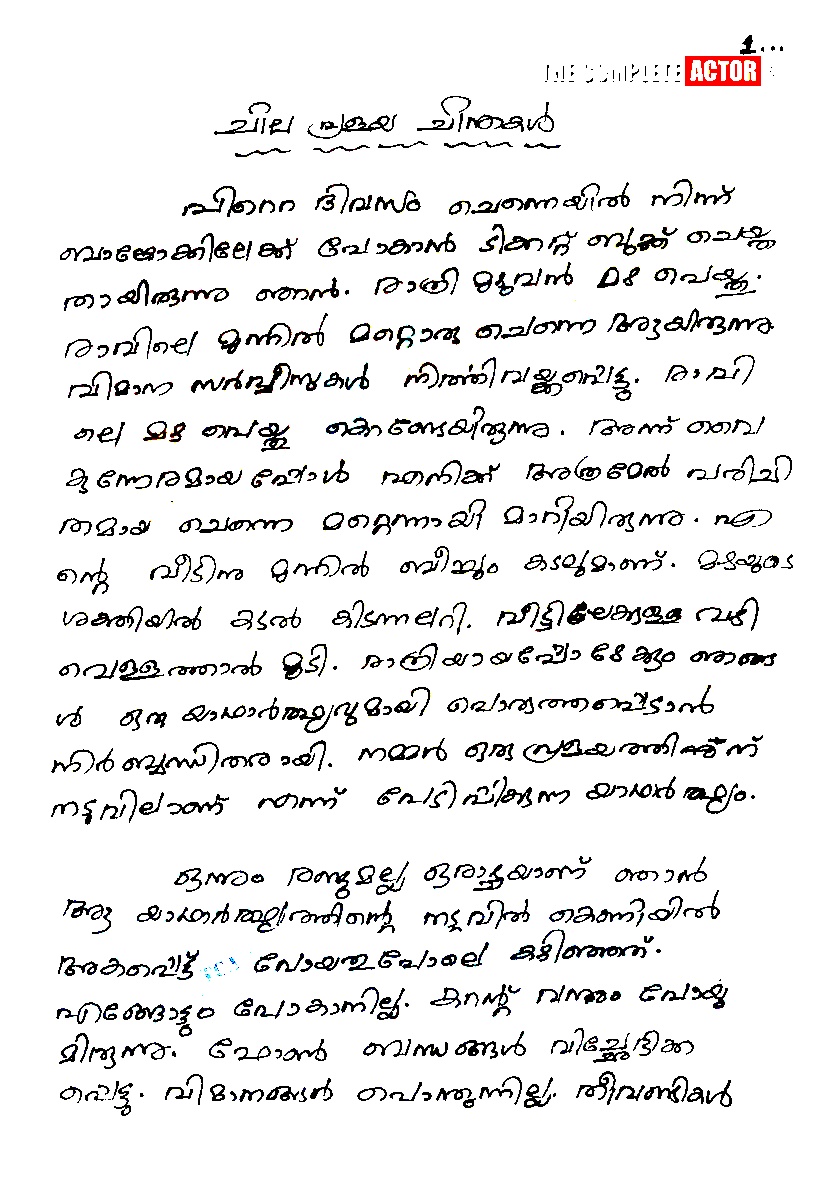 1...
THE COMPLETE ACTOR
ചില പ്രളയ ചിന്തകൾ
പിറ്റെ ദിവസം ചെന്നെയിൽ നിന്ന്
ബാങ്കോക്കിലേക്ക് പോകാൻ ടിക്കറ്റ് ബുക്ക് ചെയ്ത
തായിരുന്നു ഞാൻ. രാത്രി മുഴുവൻ മഴ പെയ്തു.
രാവിലെ മുന്നിൽ മറ്റൊരു ചെന്നെ ആയിരുന്നു
വിമാന സർവ്വീസുകൾ നിർത്തിവയ്ക്കപ്പെട്ടു. രാവി
ലെ മഴ പെയ്തു കൊണ്ടേയിരുന്നു. അന്ന് വൈ
കുന്നേരമായപ്പോൾ എനിക്ക് അത്രമേൽ പരിചി
തമായ ചെന്നെ മറ്റെന്തായി മാറിയിരുന്നു. എ
ന്റെ വീടിനു മുന്നിൽ ബീച്ചും കടലുമാണ്. മഴയുടെ
ശക്തിയിൽ കടൽ കിടന്നലറി. വീട്ടിലേക്കുള്ള വഴി
വെള്ളത്താൽ മൂടി. രാത്രിയായപ്പോഴേക്കും ഞങ്ങ
ൾ ഒരു യാഥാർത്ഥ്യവുമായി പൊരുത്തപ്പെടാൻ
നിർബ്ബന്ധിതരായി. നമ്മൾ ഒരു പ്രളയത്തിന്
നടുവിലാണ് എന്ന് പേടിപ്പിക്കുന്ന യാഥാർത്ഥ്യം.
ഒന്നും രണ്ടുമല്ല ഒരാഴ്ചയാണ് ഞാൻ
ആ യാഥാർത്ഥ്യത്തിന്റെ നടുവിൽ കെണിയിൽ
അകപ്പെട്ട് പോയതുപോലെ കഴിഞ്ഞത്.
എങ്ങോട്ടും പോകാനില്ല. കറന്റ് വന്നും പോയു
മിരുന്നു. ഫോൺ ബന്ധങ്ങൾ വിച്ഛേദിക്ക
പ്പെട്ടു. വിമാനങ്ങൾ പൊന്തുന്നില്ല. തീവണ്ടികൾ